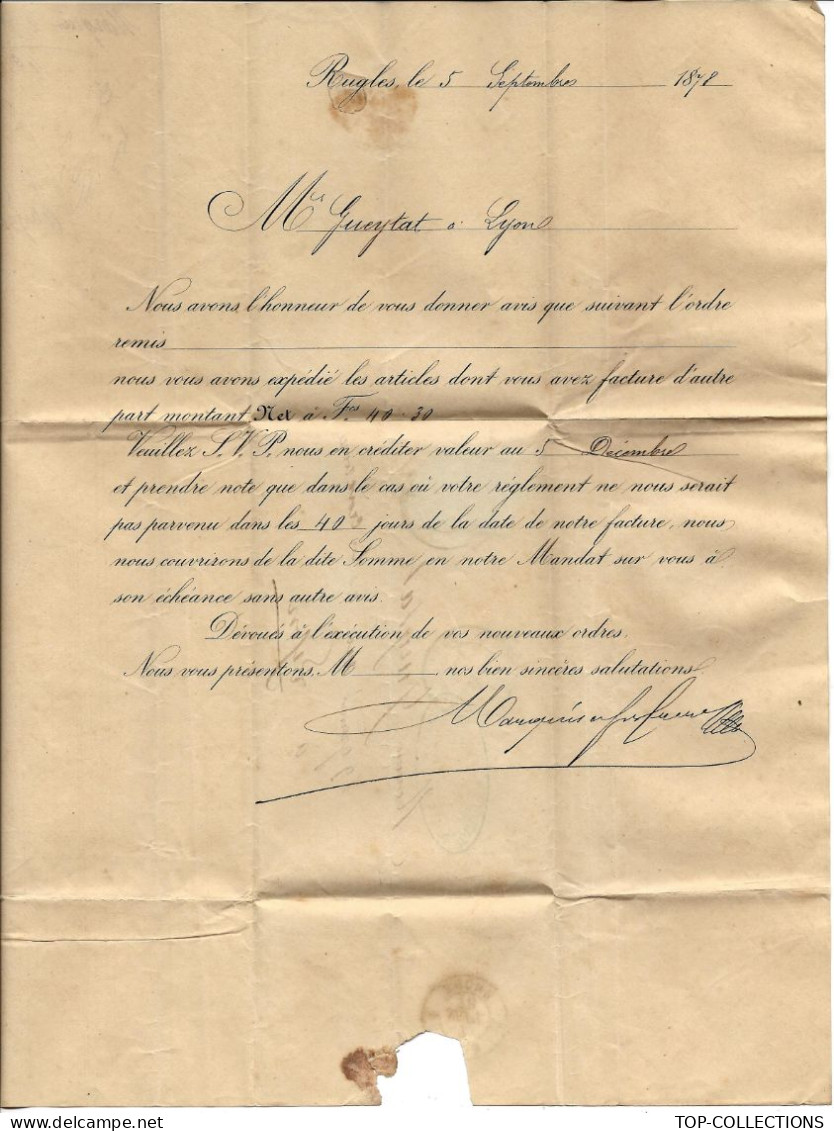 Rugles, le 5 Septembre 1878
Mr Gueytat à Lyon
Nous avons l'honneur de vous donner avis que suivant l'ordre
remis
nous vous avons expédié les articles dont vous avez facture d'autre
part montant Net à Fcs 40-30
Veuillez S.V.P. nous en créditer valeur au 5 Décembre
et prendre note que dans le cas où votre réglement ne nous serait
pas parvenu dans les 40 jours de la date de notre facture, nous
nous couvrirons de la dite Somme en notre Mandat sur vous à
son échéance sans autre avis.
Dévoués à l'exécution de vos nouveaux ordres.
Nous vous présentons, M nos bien sincères salutations.
TOP-COLLECTIONS